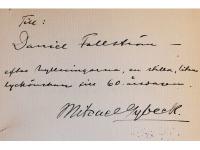 Till:
Daniel Fallström —
efter hyllningarna, en stilla, liten
lyckönskan till 60-årsdagen.
Mikael Lybeck.